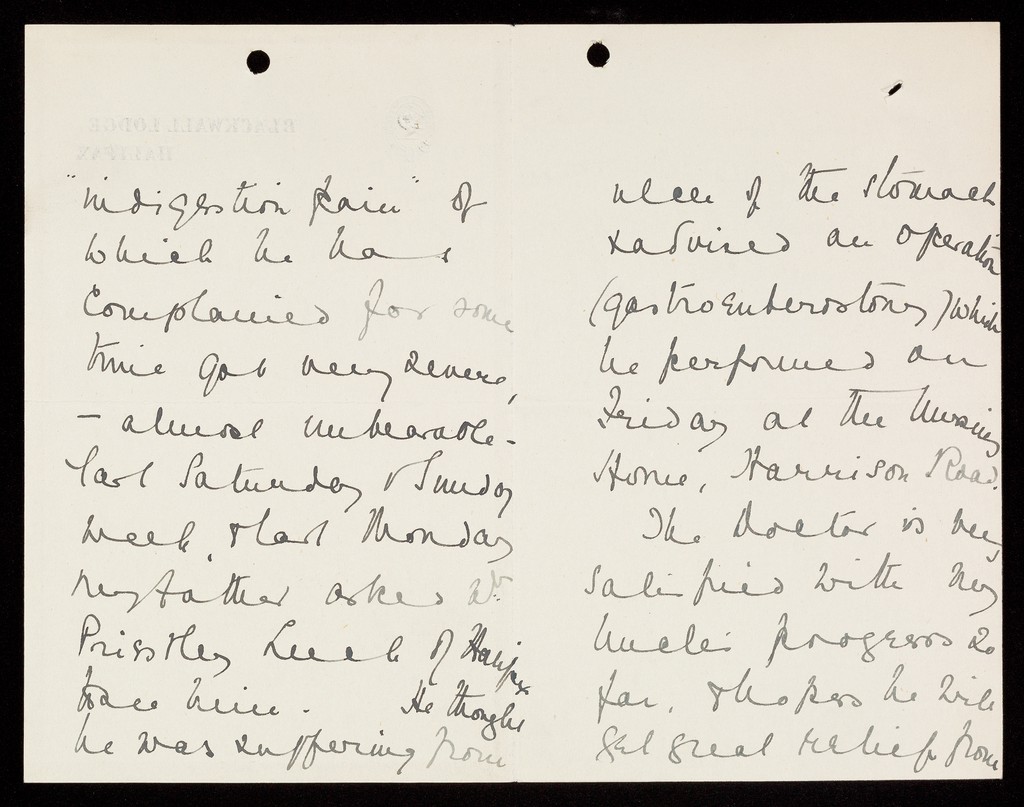 BLACKWALL LODGE
HALIFAX
"indigestion pain" of
which he has
complained for some
time got very severe,
– almost unbearable –
last Saturday & Sunday
week, & last Monday
my father asked Dr.
Priestley Leech of Halifax
to see him. He thought
he was suffering from
ulcer of the stomach
& advised an operation
(gastroenterostomy) which
he performed on
Friday at the Nursing
Home, Harrison Road.
The Doctor is very
satisfied with my
Uncle's progress so
far, & hopes he will
get great relief from